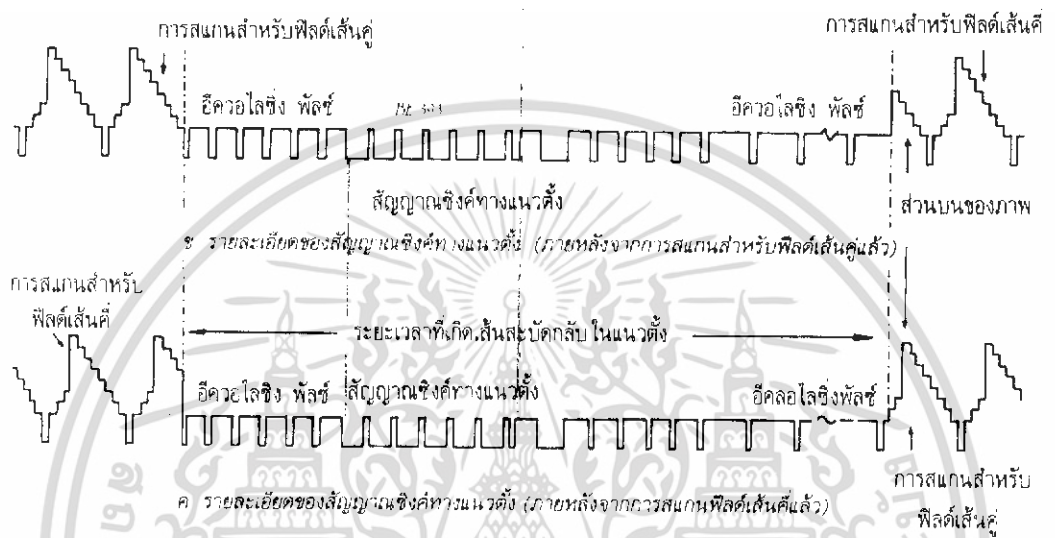 การสแกนสำหรับฟิลด์เส้นคู่
การสแกนสำหรับฟิลด์เส้นคี่
อีควอไลซิ่ง พัลซ์
อีควอไลซิ่ง พัลซ์
สัญญาณซิงค์ทางแนวตั้ง
ส่วนบนของภาพ
ข รายละเอียดของสัญญาณซิงค์ทางแนวตั้ง (ภายหลังจากการสแกนสำหรับฟิลด์เส้นคู่แล้ว)
การสแกนสำหรับ
ฟิลด์เส้นคี่
ระยะเวลาที่เกิดเส้นสะบัดกลับในแนวตั้ง
อีควอไลซิ่ง พัลซ์
สัญญาณซิงค์ทางแนวตั้ง
อีคลอไลซิ่งพัลซ์
การสแกนสำหรับ
ฟิลด์เส้นคู่
ค รายละเอียดของสัญญาณซิงค์ทางแนวตั้ง (ภายหลังจากการสแกนฟิลด์เส้นคี่แล้ว)